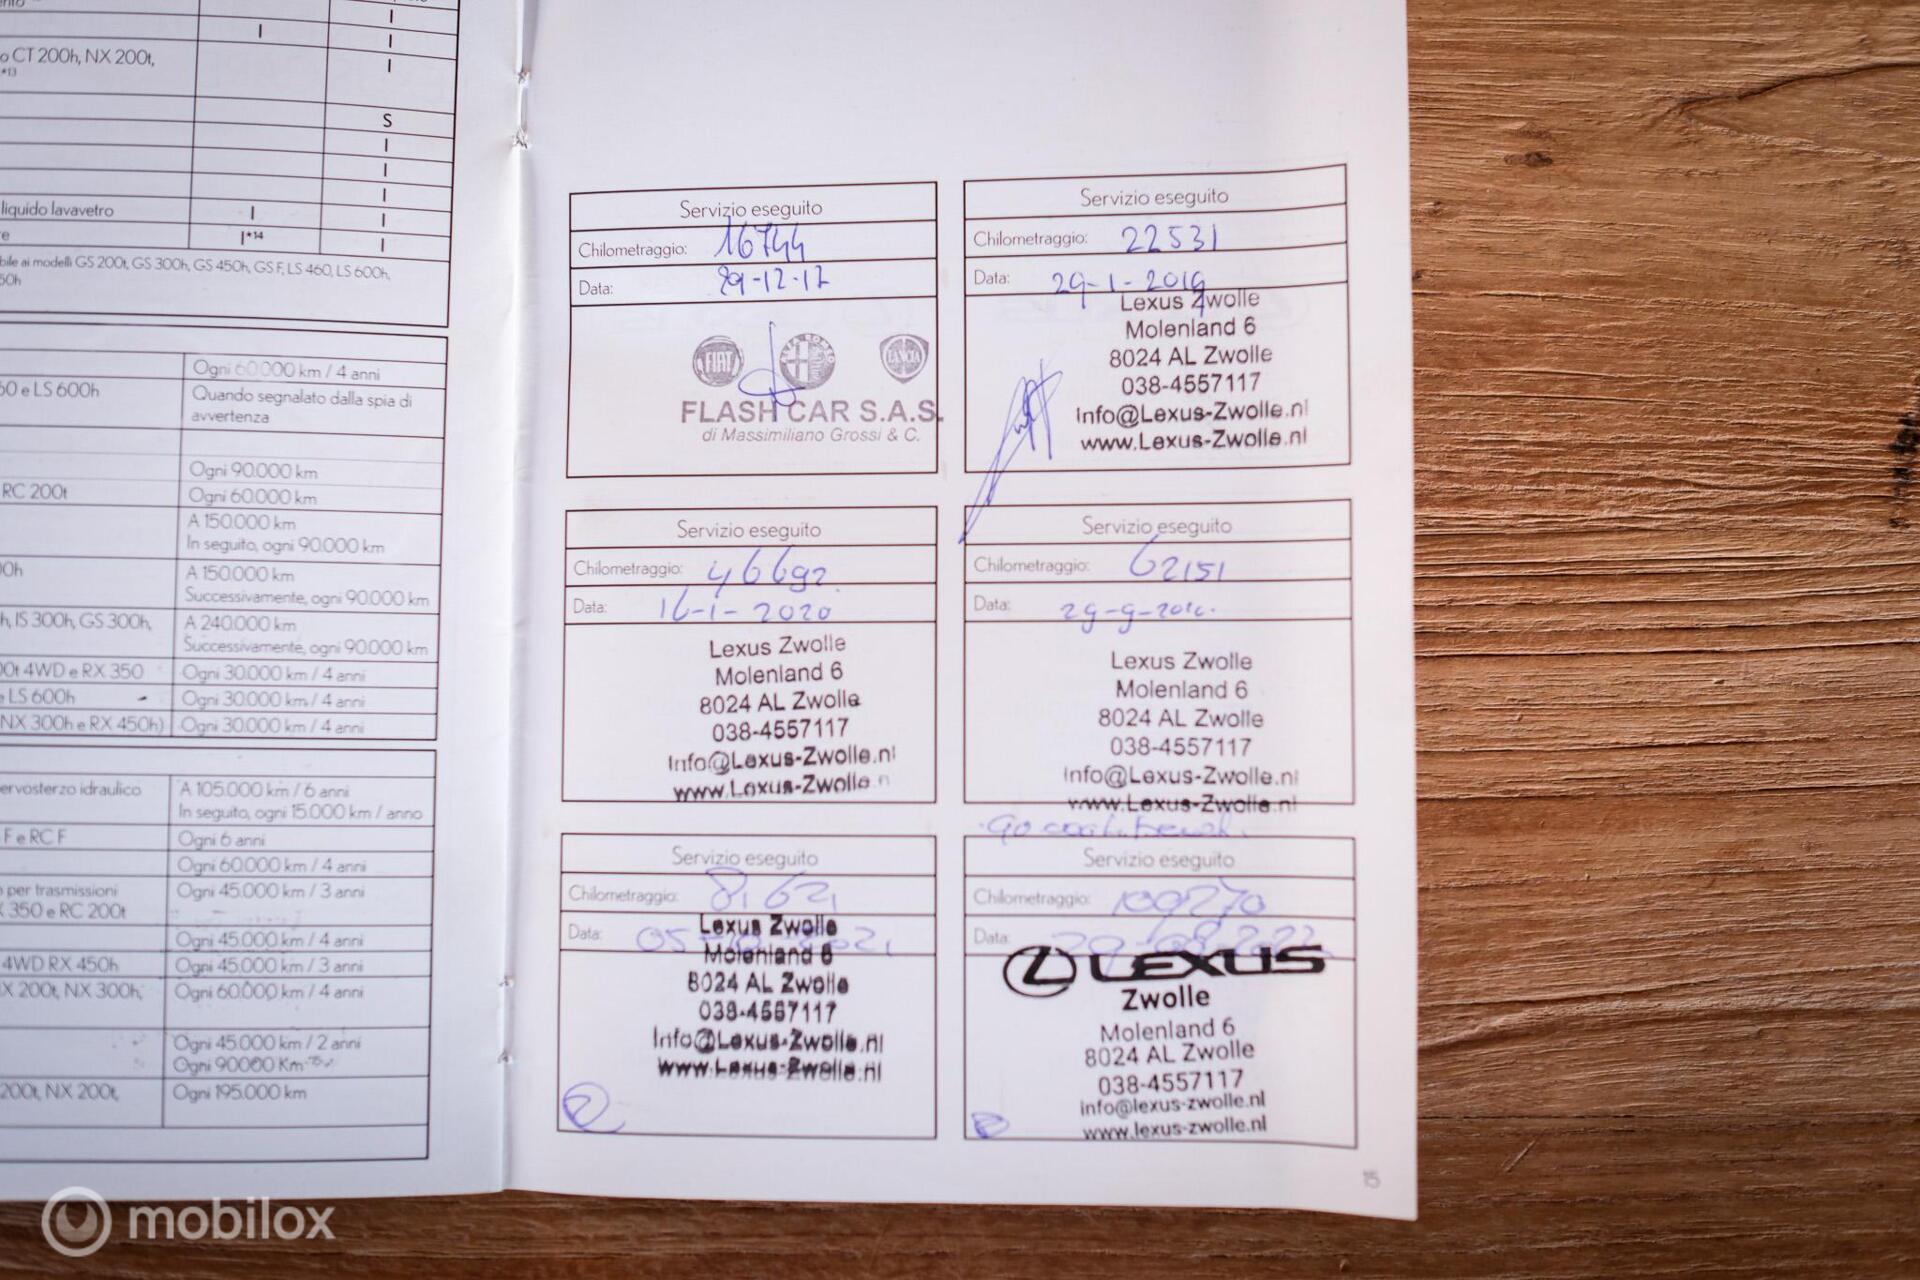 I
I
I
o CT 200h, NX 200t,
*13
I
S
I
I
I
liquido lavavetro I I
re I*14 I
bile ai modelli GS 200t, GS 300h, GS 450h, GS F, LS 460, LS 600h,
50h
Ogni 60.000 km / 4 anni
60 e LS 600h Quando segnalato dalla spia di
avvertenza
Ogni 90.000 km
RC 200t Ogni 60.000 km
A 150.000 km
In seguito, ogni 90.000 km
00h A 150.000 km
Successivamente, ogni 90.000 km
h, IS 300h, GS 300h, A 240.000 km
Successivamente, ogni 90.000 km
00t 4WD e RX 350 Ogni 30.000 km / 4 anni
e LS 600h Ogni 30.000 km / 4 anni
NX 300h e RX 450h) Ogni 30.000 km / 4 anni
ervosterzo idraulico A 105.000 km / 6 anni
In seguito, ogni 15.000 km / anno
F e RC F Ogni 6 anni
Ogni 60.000 km / 4 anni
per trasmissioni Ogni 45.000 km / 3 anni
X 350 e RC 200t
Ogni 45.000 km / 4 anni
4WD RX 450h Ogni 45.000 km / 3 anni
IX 200t, NX 300h, Ogni 60.000 km / 4 anni
Ogni 45.000 km / 2 anni
Ogni 90000 Km
200t, NX 200t, Ogni 195.000 km
Servizio eseguito
Chilometraggio: 16744
Data: 29-12-17
FIAT ALFA ROMEO LANCIA
FLASH CAR S.A.S.
di Massimiliano Grossi & C.
Servizio eseguito
Chilometraggio: 22531
Data: 29-1-2019
Lexus Zwolle
Molenland 6
8024 AL Zwolle
038-4557117
Info@Lexus-Zwolle.nl
www.Lexus-Zwolle.nl
Servizio eseguito
Chilometraggio: 46692
Data: 16-1-2020
Lexus Zwolle
Molenland 6
8024 AL Zwolle
038-4557117
Info@Lexus-Zwolle.nl
www.Lexus-Zwolle.n
Servizio eseguito
Chilometraggio: 62151
Data:
Lexus Zwolle
Molenland 6
8024 AL Zwolle
038-4557117
Info@Lexus-Zwolle.nl
www.Lexus-Zwolle.nl
Servizio eseguito
Chilometraggio: 81621
Data:
Lexus Zwolle
Molenland 6
8024 AL Zwolle
038-4557117
Info@Lexus-Zwolle.nl
www.Lexus-Zwolle.nl
Servizio eseguito
Chilometraggio: 109270
Data:
LEXUS
Zwolle
Molenland 6
8024 AL Zwolle
038-4557117
info@lexus-zwolle.nl
www.lexus-zwolle.nl
15
mobilox